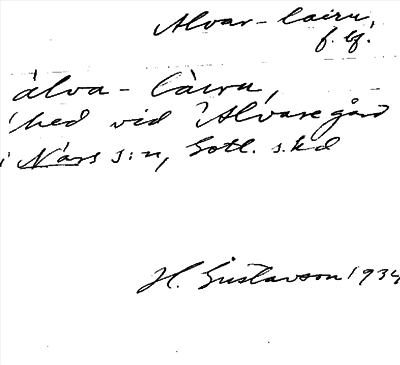 Alvar-lairu,
f. lf.
álva - làiru,
'hed vid Alvaregård
i Närs s:n, Gotl. s:kd
H. Gustavson 1934